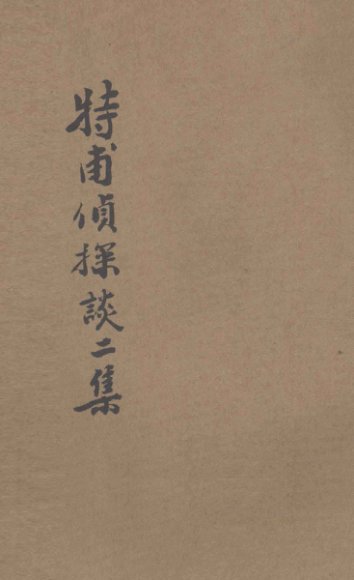 特甫偵探談二集